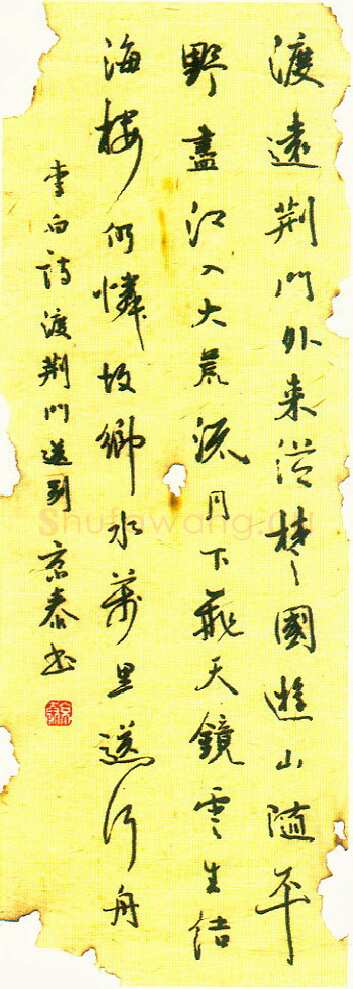 渡遠荆門外来從楚國遊山随平
野盡江入大荒流月下飛天鏡雲生結
海楼仍憐故鄉水萬里送行舟
李白詩渡荆門送别 京泰书